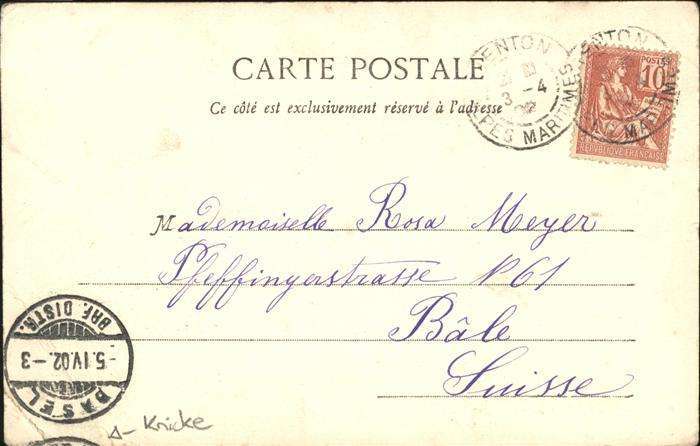 CARTE POSTALE
Ce côté est exclusivement réservé à l'adresse
MENTON
3 -4
02
ALPES MARITIMES
MENTON
ALPES MARITIMES
POSTES
10
REPUBLIQUE FRANÇAISE
Mademoiselle Rosa Meyer
Pfeffingerstrasse № 61
Bâle
Suisse
BRF. DISTR.
-5.IV.02.-3
BASEL
Knicke